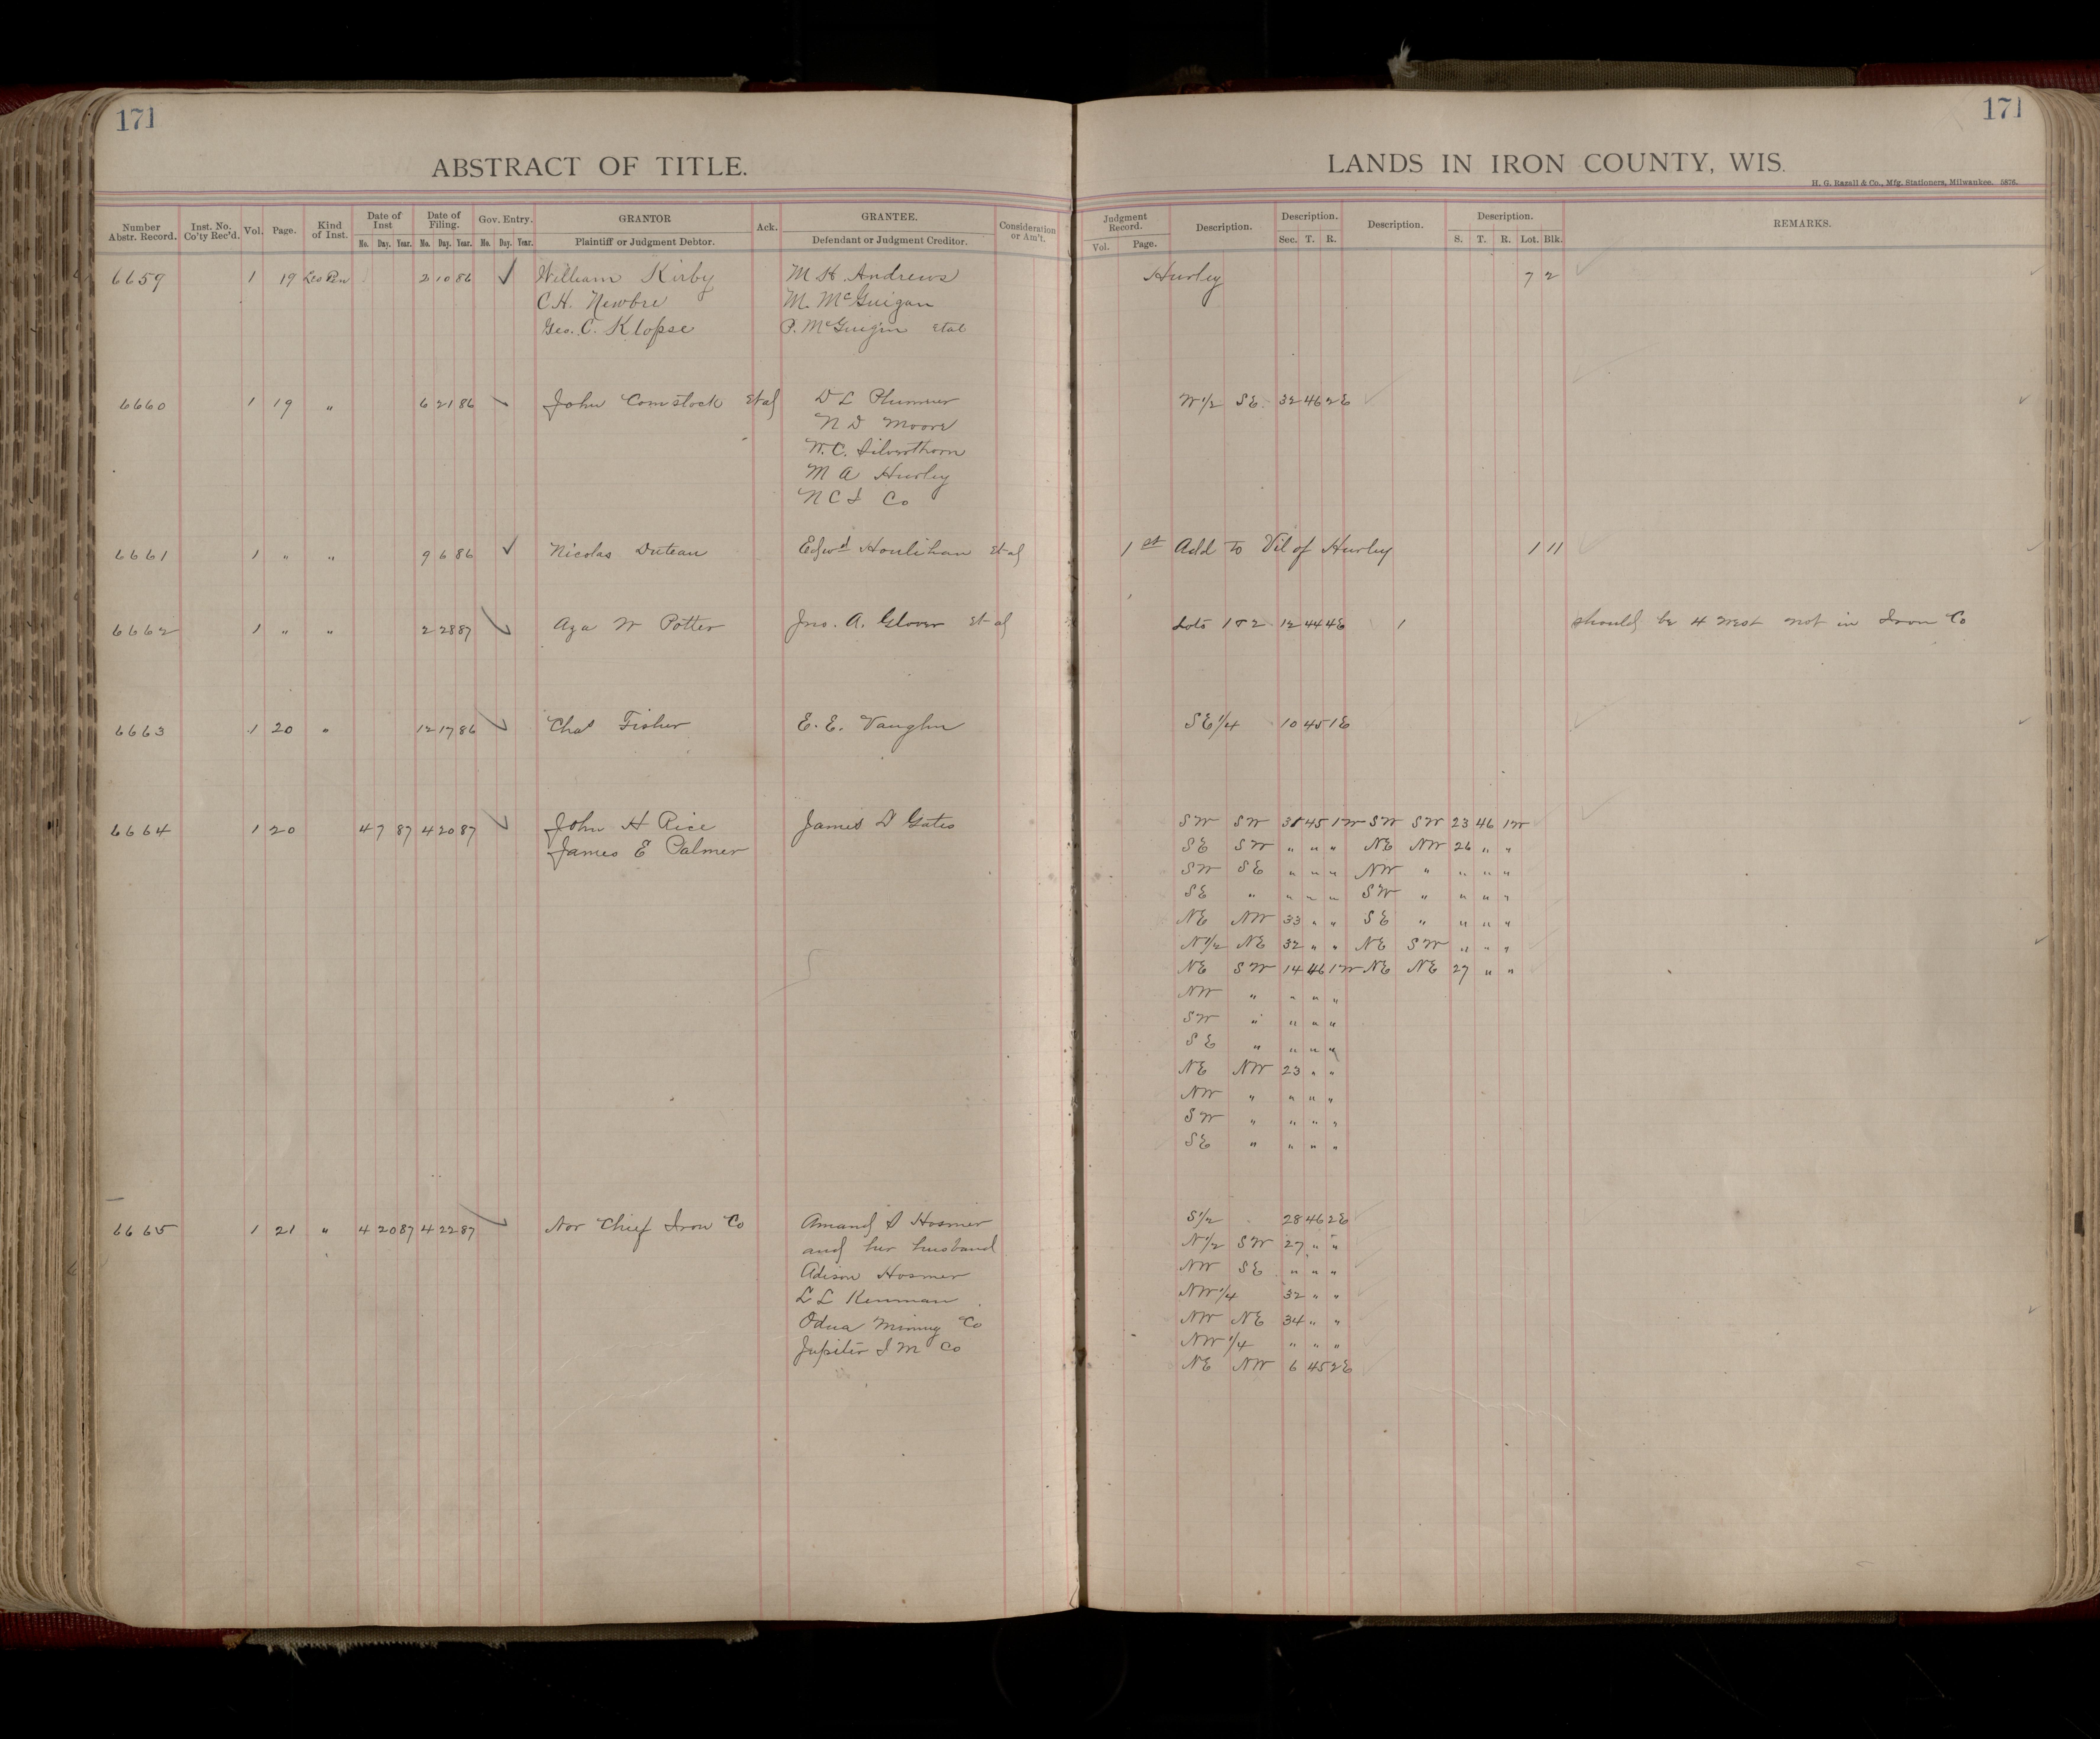 171
171
ABSTRACT OF TITLE.
LANDS IN IRON COUNTY, WIS.
H. G. Razall & Co., Mfg. Stationers, Milwaukee. 5876.
Number Abstr. Record. Inst. No. Co'ty Rec'd. Vol. Page. Kind of Inst. Date of Inst Date of Filing. Gov. Entry. GRANTOR Ack. GRANTEE. Consideration or Am't. Judgment Record. Description. Description. Description. Description. REMARKS.
No. Day. Year. No. Day. Year. No. Day. Year. Plaintiff or Judgment Debtor. Defendant or Judgment Creditor. Vol. Page. Sec. T. R. S. T. R. Lot. Blk.
6659 1 19 Les Pen 2 10 86 ✓ William Kirby M H Andrews Hurley 7 2
C.H. Newbre M. McGuigan
Geo. C. Klopse P. McGuigin et al
6660 1 19 " 6 21 86 John Comstock et al D L Plumer W 1/2 SE 32 46 2E
N D Moore
W. C. Silverthorn
M A Hurley
N C I Co
6661 1 " " 9 6 86 ✓ Nicolas Duteau Edwd Houlihan et al 1st Add to Vil of Hurley 1 11
6662 1 " " 2 28 87 ✓ Aza W Potter Jno. A. Glover et al Lots 1 & 2 12 44 4E 1 should be 4 west not in Iron Co
6663 1 20 " 12 17 86 ✓ Chas Fisher E. E. Vaughn SE 1/4 10 45 1E
6664 1 20 4 7 87 4 20 87 ✓ John H Rice James D Gates SW SW 31 45 1W SW SW 23 46 1W
James E Palmer SE SW " " " NE NW 26 " "
SW SE " " " NW " " " "
SE " " " " SW " " " "
NE NW 33 " " SE " " " "
N 1/2 NE 32 " " NE SW " " "
NE SW 14 46 1W NE NE 27 " "
NW " " " "
SW " " " "
SE " " " "
NE NW 23 " "
NW " " " "
SW " " " "
SE " " " "
6665 1 21 " 4 20 87 4 22 87 ✓ Nor Chief Iron Co Amand S Hosmer S 1/2 28 46 2E
and her husband N 1/2 SW 27 " "
Adison Hosmer NW SE " " "
L L Kenman NW 1/4 32 " "
Odua Mining Co NW NE 34 " "
Jupiter I M Co NW 1/4 " " "
NE NW 6 45 2E